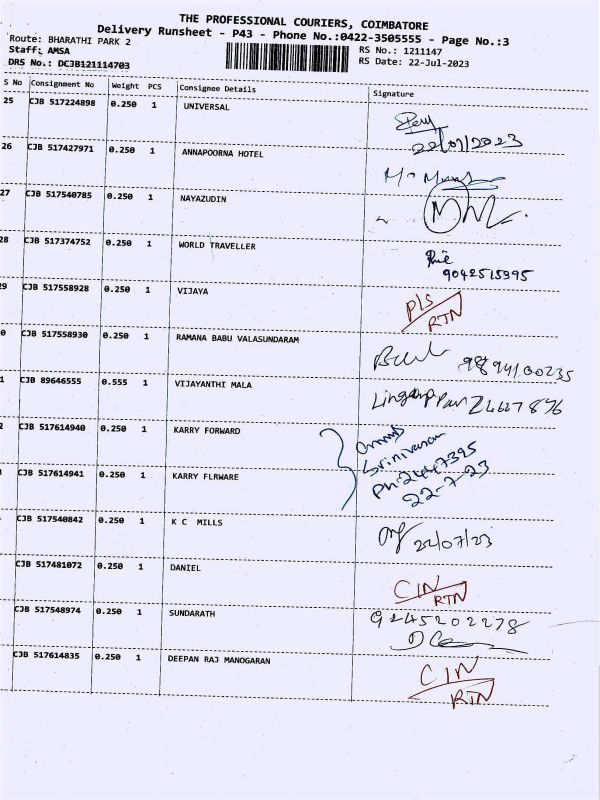 THE PROFESSIONAL COURIERS, COIMBATORE
Delivery Runsheet - P43 - Phone No.:0422-3505555 - Page No.:3
Route: BHARATHI PARK 2
Staff: AMSA
RS No.: 1211147
DRS No.: DCJB121114703
RS Date: 22-Jul-2023
S No Consignment No Weight PCS Consignee Details Signature
25 CJB 517224898 0.250 1 UNIVERSAL
22/07/2023
26 CJB 517427971 0.250 1 ANNAPOORNA HOTEL
27 CJB 517540785 0.250 1 NAYAZUDIN
28 CJB 517374752 0.250 1 WORLD TRAVELLER
9042515395
29 CJB 517558928 0.250 1 VIJAYA P/S
RTN
0 CJB 517558930 0.250 1 RAMANA BABU VALASUNDARAM
9894100235
1 CJB 89646555 0.555 1 VIJAYANTHI MALA
2 CJB 517614940 0.250 1 KARRY FORWARD
Srinivasan
CJB 517614941 0.250 1 KARRY FLRWARE Ph:2447395
22-7-23
CJB 517540842 0.250 1 K C MILLS 22/07/23
CJB 517481072 0.250 1 DANIEL CIN
RTN
CJB 517548974 0.250 1 SUNDARATH 9245202278
CJB 517614835 0.250 1 DEEPAN RAJ MANOGARAN CIN
RTN